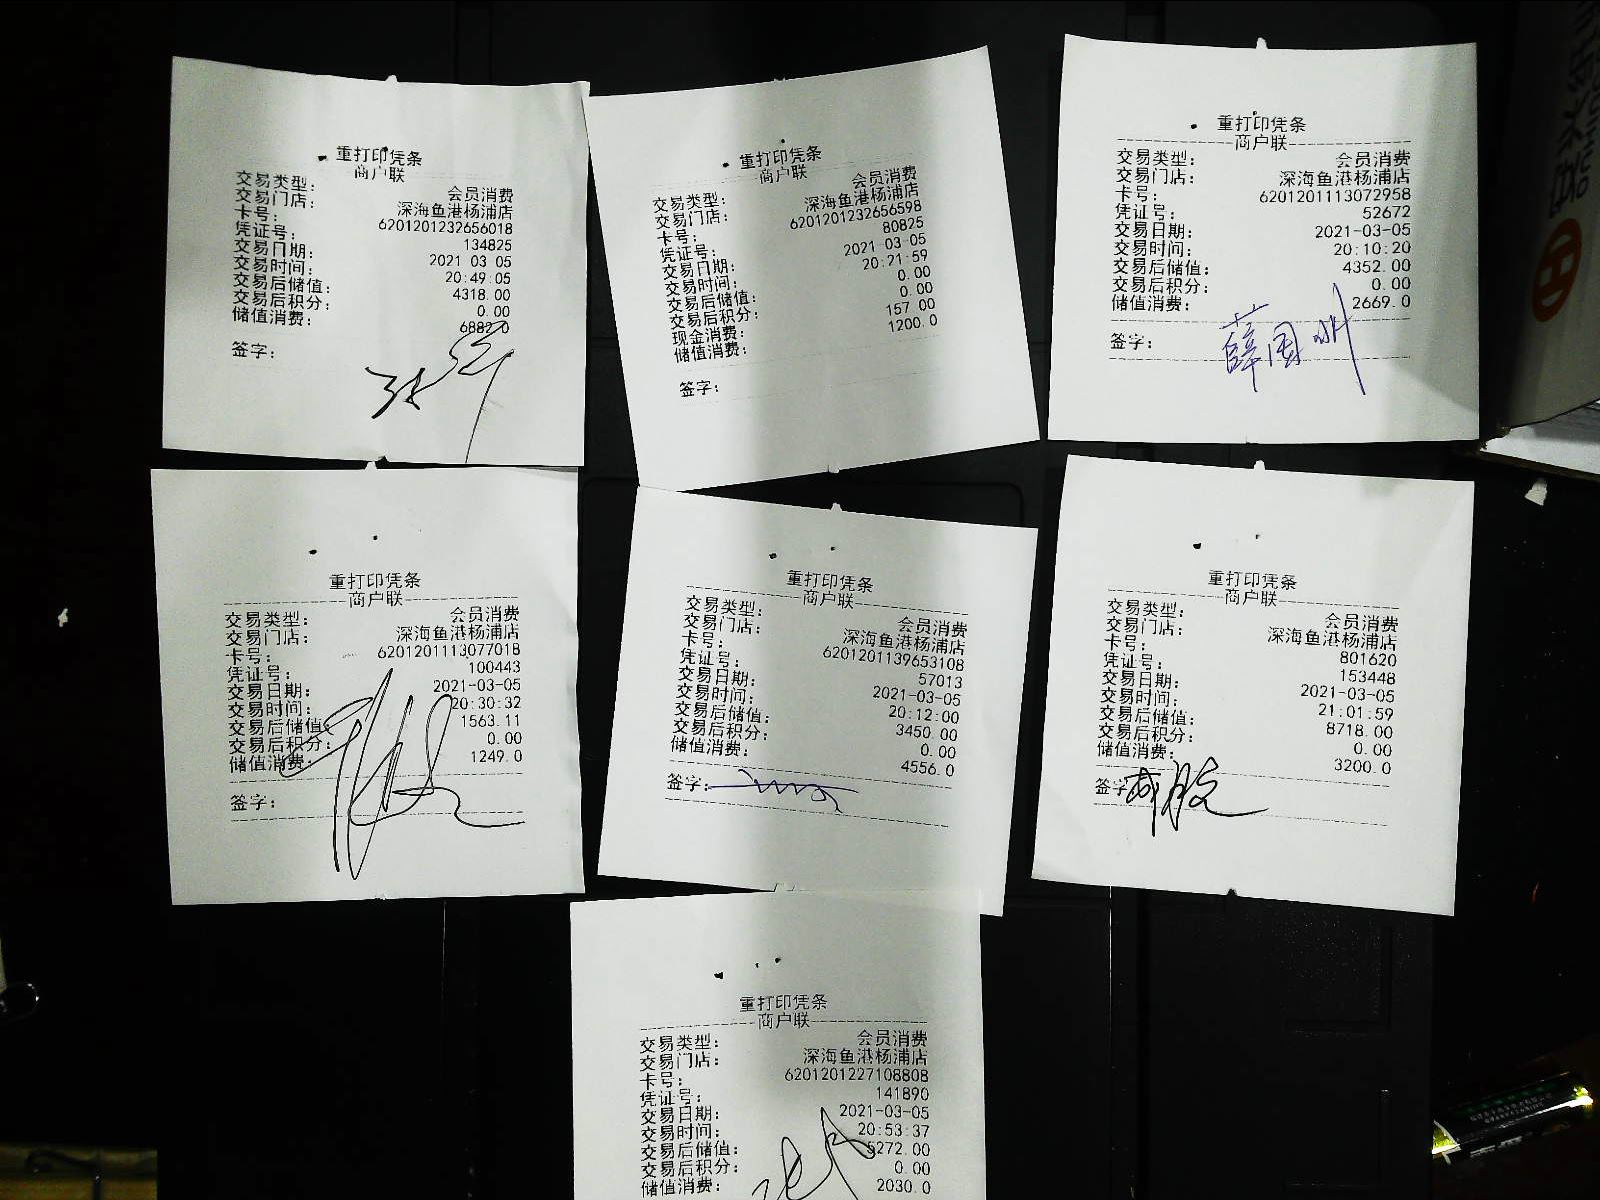 重打印凭条
商户联
交易类型： 会员消费
交易门店： 深海鱼港杨浦店
卡号： 6201201232656018
凭证号： 134825
交易日期： 2021-03-05
交易时间： 20:49:05
交易后储值： 4318.00
交易后积分： 0.00
储值消费： 6882.0
签字：
重打印凭条
商户联
交易类型： 会员消费
交易门店： 深海鱼港杨浦店
卡号： 6201201232656598
凭证号： 80825
交易日期： 2021-03-05
交易时间： 20:21:59
交易后储值： 0.00
交易后积分： 0.00
现金消费： 157.00
储值消费： 1200.0
签字：
重打印凭条
商户联
交易类型： 会员消费
交易门店： 深海鱼港杨浦店
卡号： 6201201113072958
凭证号： 52672
交易日期： 2021-03-05
交易时间： 20:10:20
交易后储值： 4352.00
交易后积分： 0.00
储值消费： 2669.0
签字： 薛国州
重打印凭条
商户联
交易类型： 会员消费
交易门店： 深海鱼港杨浦店
卡号： 6201201113077018
凭证号： 100443
交易日期： 2021-03-05
交易时间： 20:30:32
交易后储值： 1563.11
交易后积分： 0.00
储值消费： 1249.0
签字：
重打印凭条
商户联
交易类型： 会员消费
交易门店： 深海鱼港杨浦店
卡号： 6201201139653108
凭证号： 57013
交易日期： 2021-03-05
交易时间： 20:12:00
交易后储值： 3450.00
交易后积分： 0.00
储值消费： 4556.0
签字：
重打印凭条
商户联
交易类型： 会员消费
交易门店： 深海鱼港杨浦店
卡号： 801620
凭证号： 153448
交易日期： 2021-03-05
交易时间： 21:01:59
交易后储值： 8718.00
交易后积分： 0.00
储值消费： 3200.0
签字
重打印凭条
商户联
交易类型： 会员消费
交易门店： 深海鱼港杨浦店
卡号： 6201201227108808
凭证号： 141890
交易日期： 2021-03-05
交易时间： 20:53:37
交易后储值： 5272.00
交易后积分： 0.00
储值消费： 2030.0